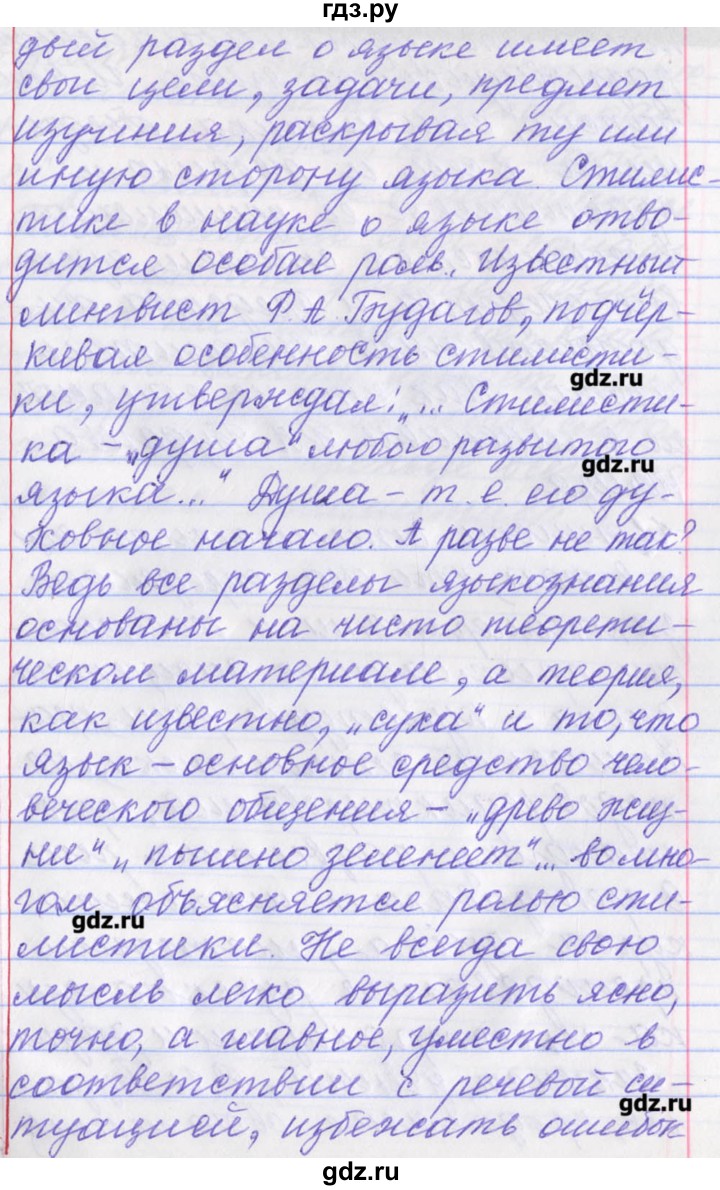 гдз.ру
дый раздел о языке имеет
свои цели, задачи, предмет
изучения, раскрывая ту или
иную сторону языка. Стилис-
тике в науке о языке отво-
дится особая роль. Известный
лингвист Ф. А. Будагов, подчёр-
кивая особенность стилисти-
gdz.ru
ки, утверждал: „... Стилисти-
ка – „душа“ любого развитого
gdz.ru
языка...“ Душа – т. е. его ду-
ховное начало. А разве не так?
Ведь все разделы языкознания
основаны на чисто теорети-
ческом материале, а теория,
как известно, „суха“ и то, что
язык – основное средство чело-
веческого общения – „древо жиз-
ни“ „ пышно зеленеет“... во мно-
гом объясняется ролью сти-
gdz.ru
листики. Не всегда свою
мысль легко выразить ясно,
точно, а главное, уместно в
соответствии с речевой си-
gdz.ru
туацией, избежать ошибок
gdz.ru